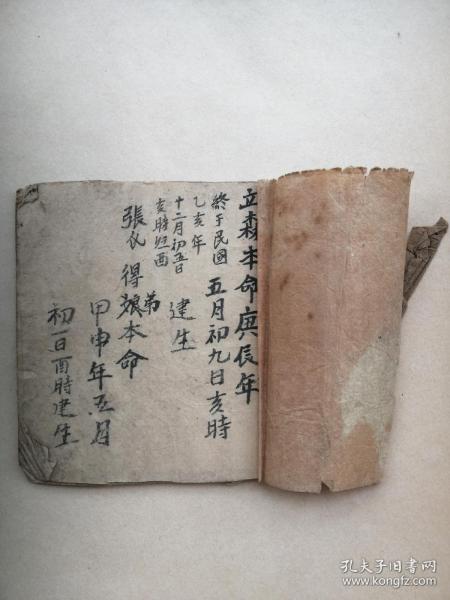 立森本命庚辰年
五月初九日亥時
建生
終于民國
乙亥年
十二月初五日
亥時
弟
張氏得娘本命
甲申年五月
初一日酉時建生
孔夫子旧书网
www.kongfz.com